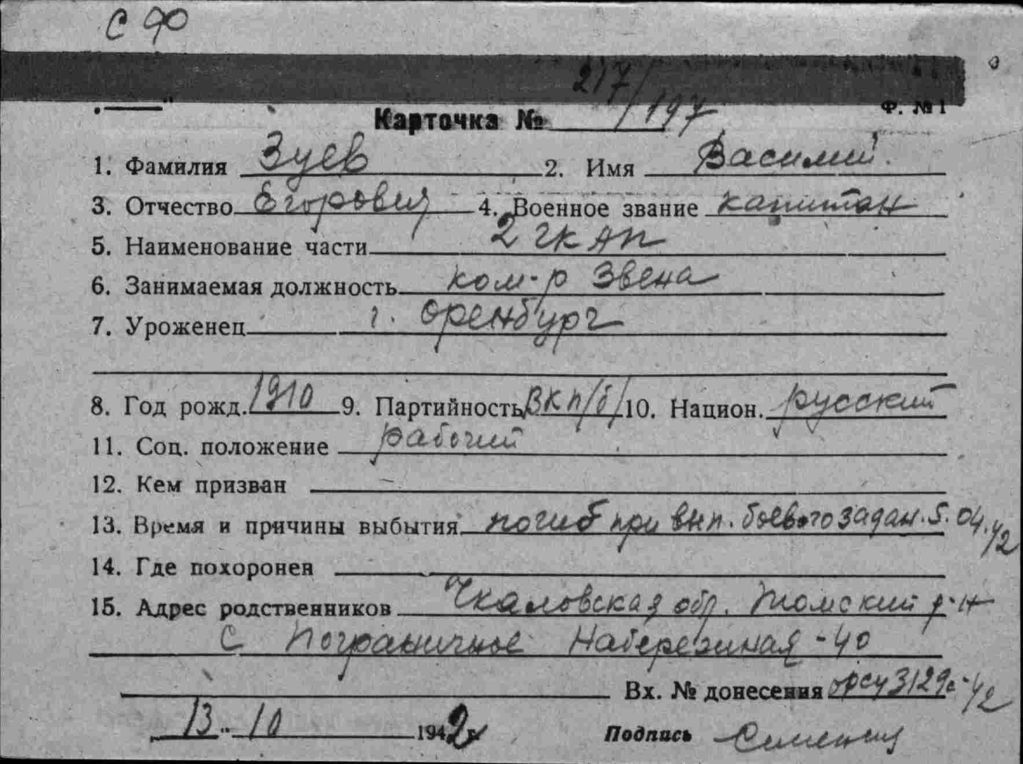 СФ
Ф. №1
Карточка № 217/197
1. Фамилия Зуев 2. Имя Василий.
3. Отчество Егорович 4. Военное звание капитан
5. Наименование части 2 ГКАП
6. Занимаемая должность ком-р Звена
7. Уроженец г. Оренбург
8. Год рожд. 1910 9. Партийность ВКП/б/ 10. Национ. русский
11. Соц. положение рабочий
12. Кем призван
13. Время и причины выбытия погиб при вып. боевого задан. 5.04.42
14. Где похоронен
15. Адрес родственников Чкаловская обл. р-н
с Пограничное Набережная-40
Вх. № донесения 3129с-42
13.. 10 1942 г.
Подпись